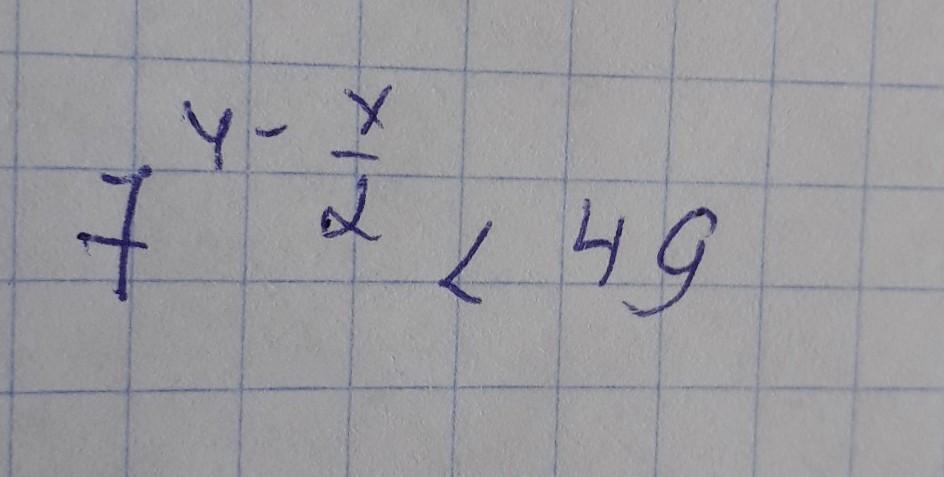 7^{4 - \frac{x}{2}} < 49